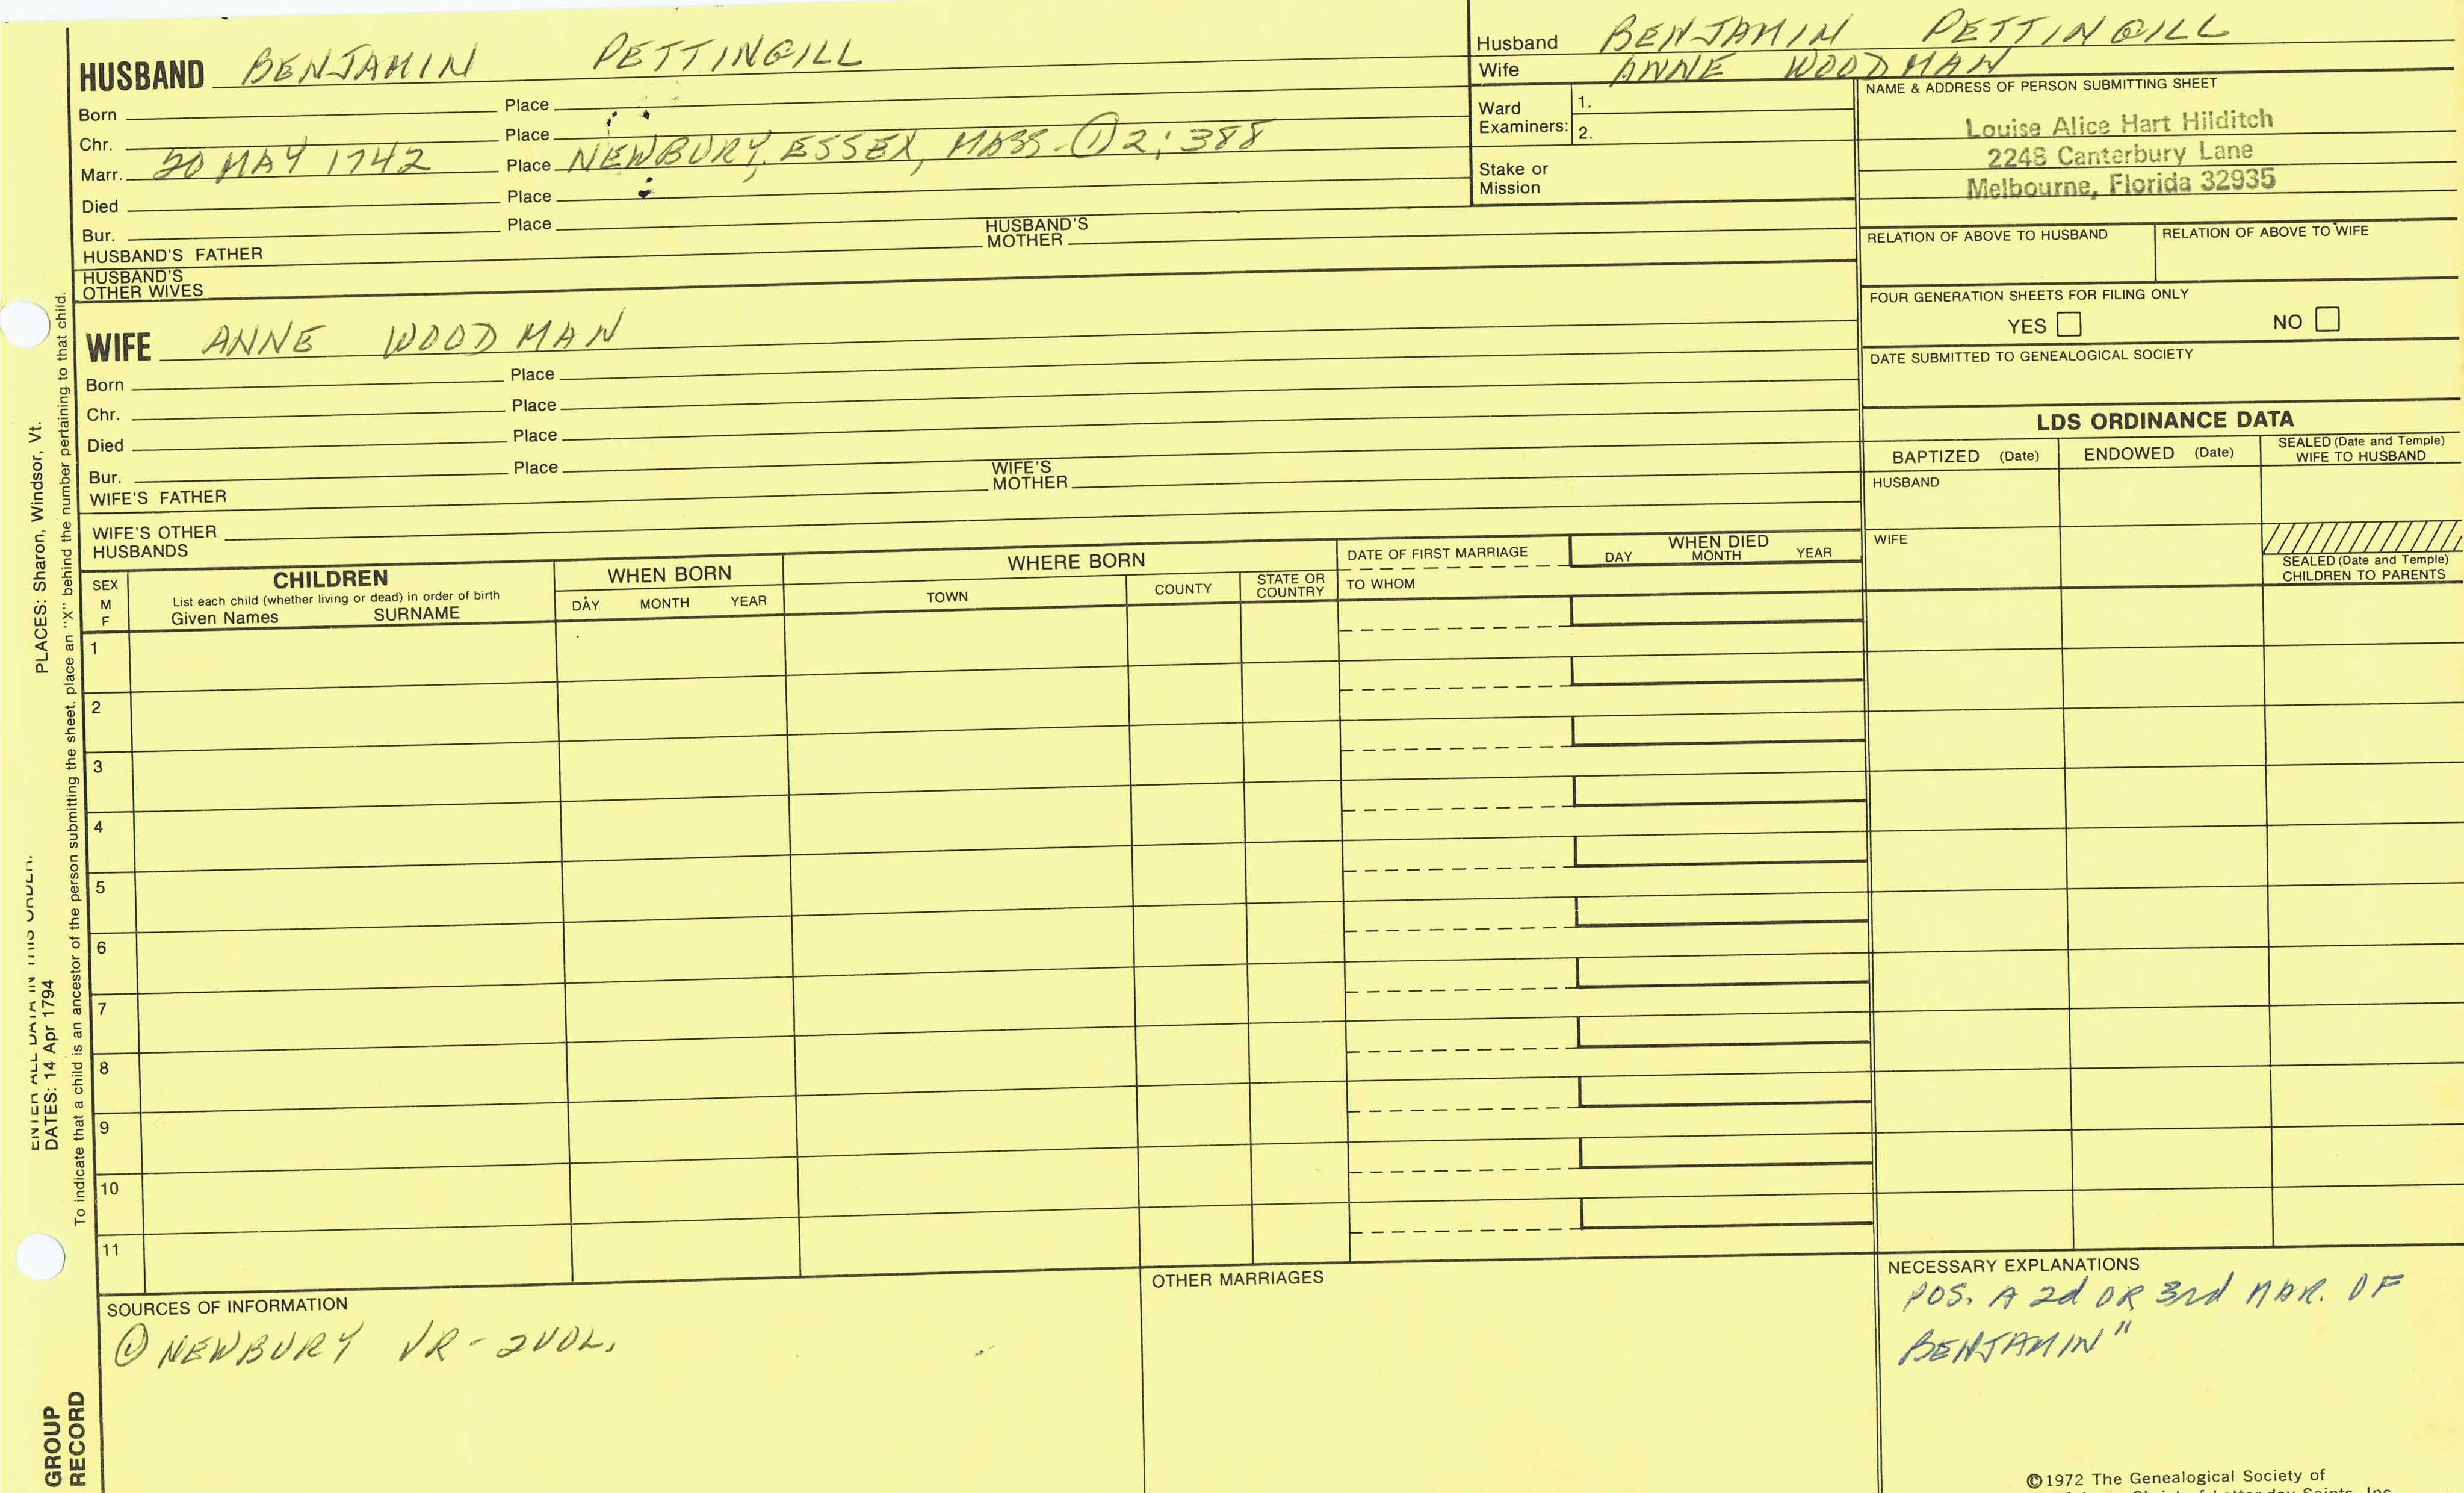 HUSBAND BENJAMIN PETTINGILL
Born Place
Chr. Place
Marr. 20 MAY 1742 Place NEWBURY, ESSEX, MASS - ① 2:388
Died Place
Bur. Place
HUSBAND'S FATHER HUSBAND'S MOTHER
HUSBAND'S
OTHER WIVES
WIFE ANNE WOODMAN
Born Place
Chr. Place
Died Place
Bur. Place
WIFE'S FATHER WIFE'S MOTHER
WIFE'S OTHER
HUSBANDS
Husband BENJAMIN PETTINGILL
Wife ANNE WOODMAN
Ward
Examiners: 1.
2.
Stake or
Mission
NAME & ADDRESS OF PERSON SUBMITTING SHEET
Louise Alice Hart Hilditch
2248 Canterbury Lane
Melbourne, Florida 32935
RELATION OF ABOVE TO HUSBAND RELATION OF ABOVE TO WIFE
FOUR GENERATION SHEETS FOR FILING ONLY
YES NO
DATE SUBMITTED TO GENEALOGICAL SOCIETY
LDS ORDINANCE DATA
BAPTIZED (Date) ENDOWED (Date) SEALED (Date and Temple)
WIFE TO HUSBAND
HUSBAND
WIFE
SEALED (Date and Temple)
CHILDREN TO PARENTS
SEX
M
F
CHILDREN
List each child (whether living or dead) in order of birth
Given Names SURNAME
WHEN BORN
DAY MONTH YEAR
WHERE BORN
TOWN COUNTY STATE OR
COUNTRY
DATE OF FIRST MARRIAGE
TO WHOM
WHEN DIED
DAY MONTH YEAR
1
2
3
4
5
6
7
8
9
10
11
SOURCES OF INFORMATION
① NEWBURY VR - 2 VOL.
OTHER MARRIAGES
NECESSARY EXPLANATIONS
POS. A 2d OR 3rd MAR. OF
BENJAMIN"
©1972 The Genealogical Society of
ENTER ALL DATA IN THIS ORDER:
DATES: 14 Apr 1794 PLACES: Sharon, Windsor, Vt.
To indicate that a child is an ancestor of the person submitting the sheet, place an "X" behind the number pertaining to that child.
GROUP
RECORD